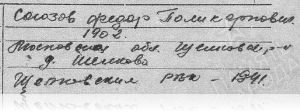 Союзов Федор Поликарпович
1902.
Московская обл. Щелковский р-н
д. Щелково
Щелковским РВК - 1941.